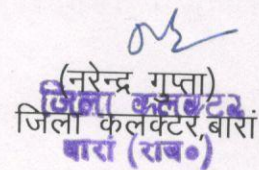 (नरेन्द्र गुप्ता)
जिला कलक्टर
जिला कलेक्टर, बारां
बारां (राज०)